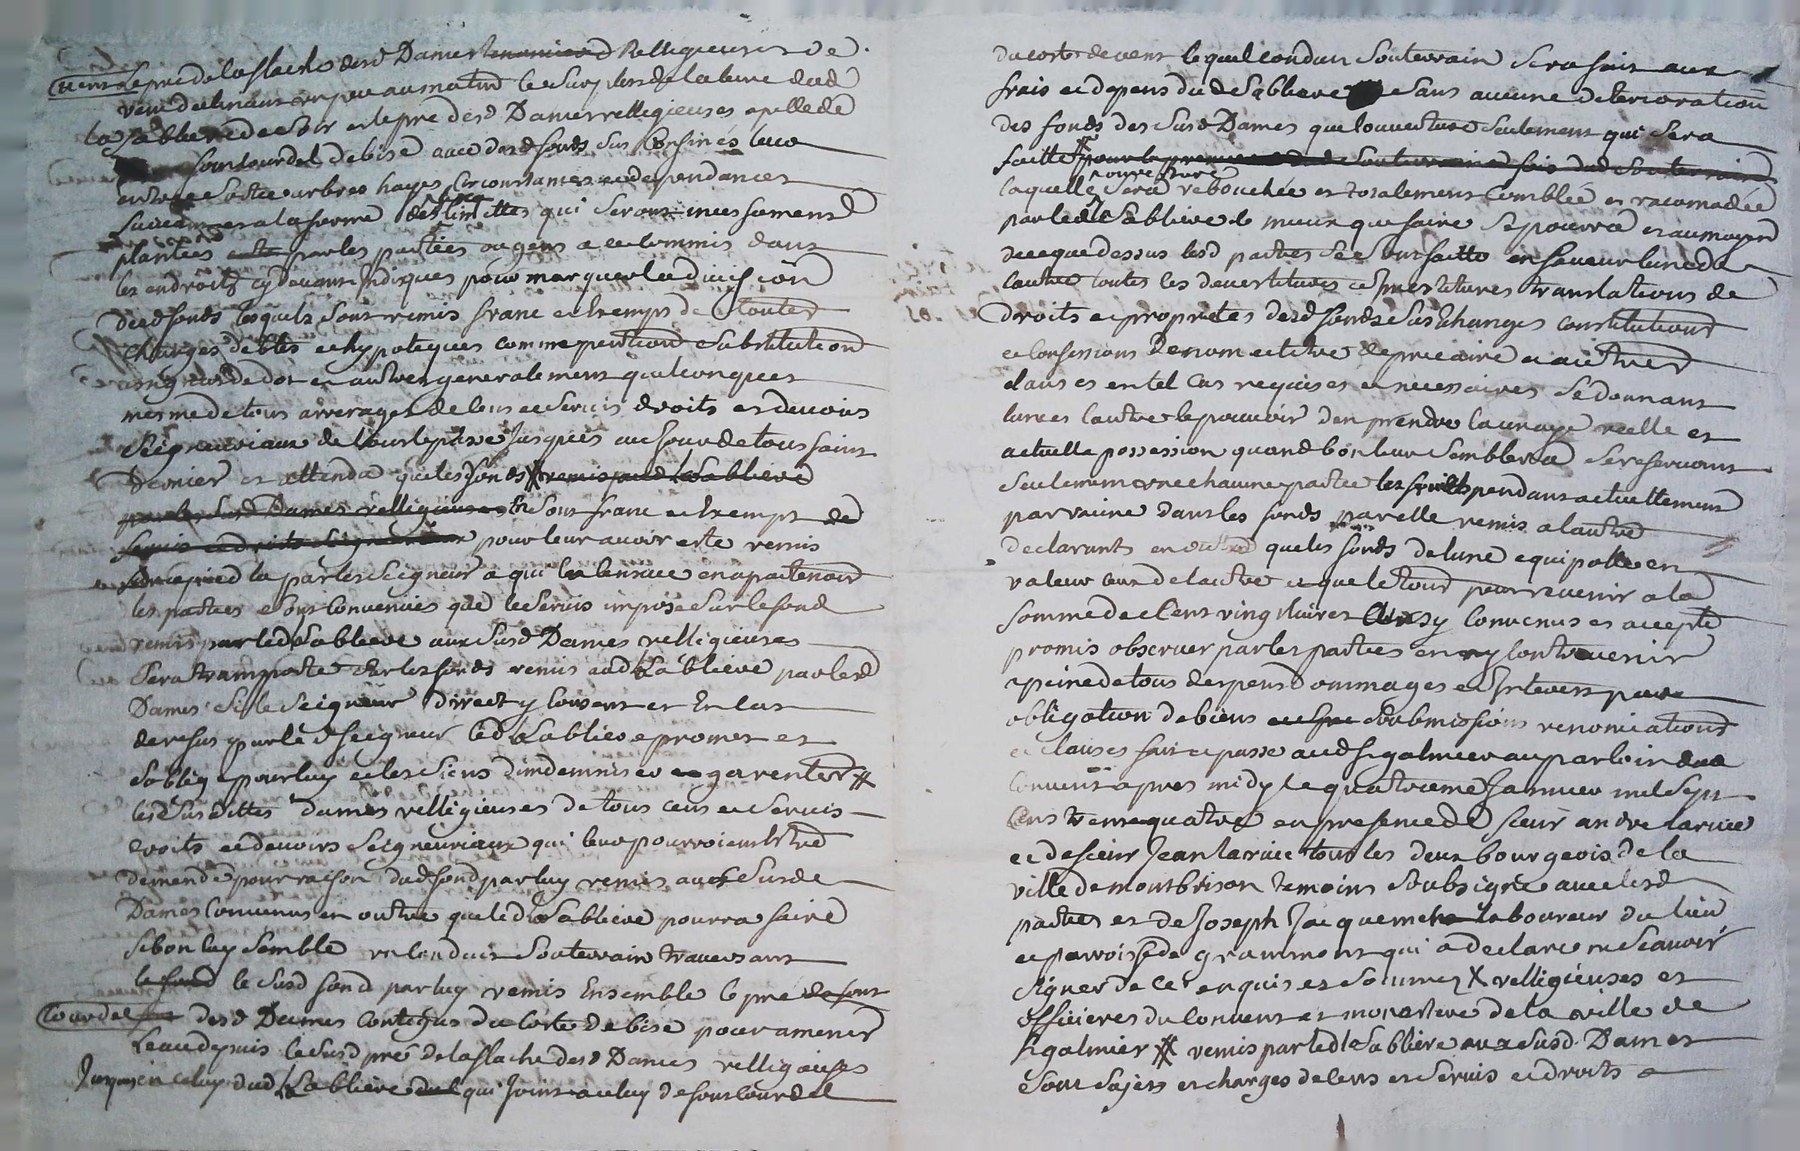 vent le pré de la flache desd Dames Relligieuses de
vent declinant un peu au matin le surplus de la terre dud
la Sabliere de soir et le pré desd Dames relligieuses apellé de
sourlourdel de bise avec desd fonds sus Confinés leur
entrée Sortie arbres hayes Circonstances et dependances
suivant et a la forme des limittes qui seront incessament
plantées par les parties ou gens a ce Commis dans
les endroits cy devant Indiqués pour marquer la division
desd fonds lesquels sont remis franc et Exempts de toutes
charges debtes et hypoteques comme pention substitution
assignat de dot et autres generalement quelconques
mesme de tous arrerages de cens et servis droits et devoirs
Seigneuriaux de tout le passé jusques au jour de tous saint
Dernier et attendu que les fonds remis par led Labliere
par les susd Dames relligieuses sont franc et Exempts de
servis et droits seigneuriaux pour leur avoir esté remis
par les Seigneur a qui la censive en apartenoit
les parties sont Convenues que le servis imposé sur le fond
remis par led Lablieve aux susd Dames relligieuses
sera transporté sur les fonds remis aud Lablieve par lesd
Dames si le Seigneur direct y consent et En cas
de refus par le d seigneur led Lablieve promet et
s'oblige pour luy et les siens d'indemniser et garentir
lesd susdittes dames relligieuses de tous cens et servis
droits et devoirs Seigneuriaux qui leur pourroient Estre
demendé pour raison dud fond par luy remis aux susd
Dames Convenus en outre que led Lablieve pourra faire
si bon luy semble un Conduit Souterrain traversant
le fond le susd fond par luy remis Ensemble le pré de sour
lourdel desd Dames Contigus du Costé de bise pour amener
l'eau depuis le susd pré de la flache desd Dames relligieuses
Jusques a celuy dud Lablieve qui joint a celuy de sourlourdel
du coste de vent lequel conduit Souterrain sera fait aux
frais et depens dud Lablieve sans aucune deterioration
des fonds des susd Dames que l'ouverture seulement qui sera
faitte pour le Souterrain
laquelle ouverture sera rebouchée et totalement Comblée et racomadée
par led Lablieve le mieux que faire se pourra et au moyen
de ce que dessus lesd parties se sont faitte en faveur l'une de
l'autre toutes les devestitures investitures translations de
droits et proprietés desd fonds sus Echangés constitutions
et Confessions de nom et titre de precaire et autres
clauses en tel Cas requises et necessaires se donnant
l'une et l'autre le pouvoir d'en prendre la vraye reelle et
actuelle possession quand bon leur semblera se reservant
seulement une chacune partie les fruits pendans actuellement
par racine dans les fonds par elle remis a l'autre
declarants en outre que les fonds de l'une equipollent en
valeur ceux de l'autre et que le tout peut revenir a la
somme de Cent vingt livres ainsy Convenus et accepté
promis observer par les parties et n'y Contrevenir
a peine de tous despens Dommages et Interets par
obligation de biens Soubmissions renonciations
et clauses fait et passé aud St galmier au parloir dud
Convent apres midy le quatrieme Janvier mil sept
Cens trente quatre en presence de Sieur andre larivée
et de sieur Jean larivée tous les deux bourgeois de la
ville de montbrison temoins Soubsigné avec lesd
parties et de Joseph Jacquemet laboureur du lieu
et parroisse de grammont qui a declaré ne sçavoir
signer de ce enquis et sommez X relligieuses et
officieres du Convent et monastere de la ville de
St galmier X remis par led Lablieve aux susd Dames
sont sujets et chargés de cens et servis et droits